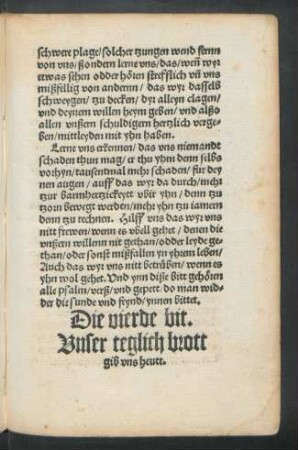 schwere plage/solcher tzungen wend fernn
von vns/ßondern lerne vns/das/weñ wyr
ettwas sehen odder hören strefflich vñ vns
mißfellig von anderñ/das wyr dasselb
schweygen/tzu decken/dyr alleyn clagen/
vnd deynem willen heym geben/vnd alßo
allen vnßern schuldigern hertzlich verge-
ben/mittleyden mit yhn haben.
Lerne vns erkennen/das vns niemandt
schaden thun mag/er thu yhm denn selbs
vorhyn/tausentmal mehr schaden/für dey
nen augen/auff das wyr da durch/mehr
tzur barmhertzickeytt vbir yhn/denn tzu
tzorn bewegt werden/mehr yhn tzu iamern
denn tzu rechnen. Hilff vns das wyr vns
nitt frewen/wenn es vbell gehet/denen die
vnßern willenn nit gethan/odder leyde ge-
than/oder sonst mißfallen yn yhrem leben/
Auch das wyr vns nitt betrüben/wenn es
yhn wol gehet. Vnd ynn diße bitt gehören
alle psalm/verß/vnd gepett. do man wid-
der die sunde vnd feynd/ynnen bittet.
Die vierde bit.
Vnser teglich brott
gib vns heutt.